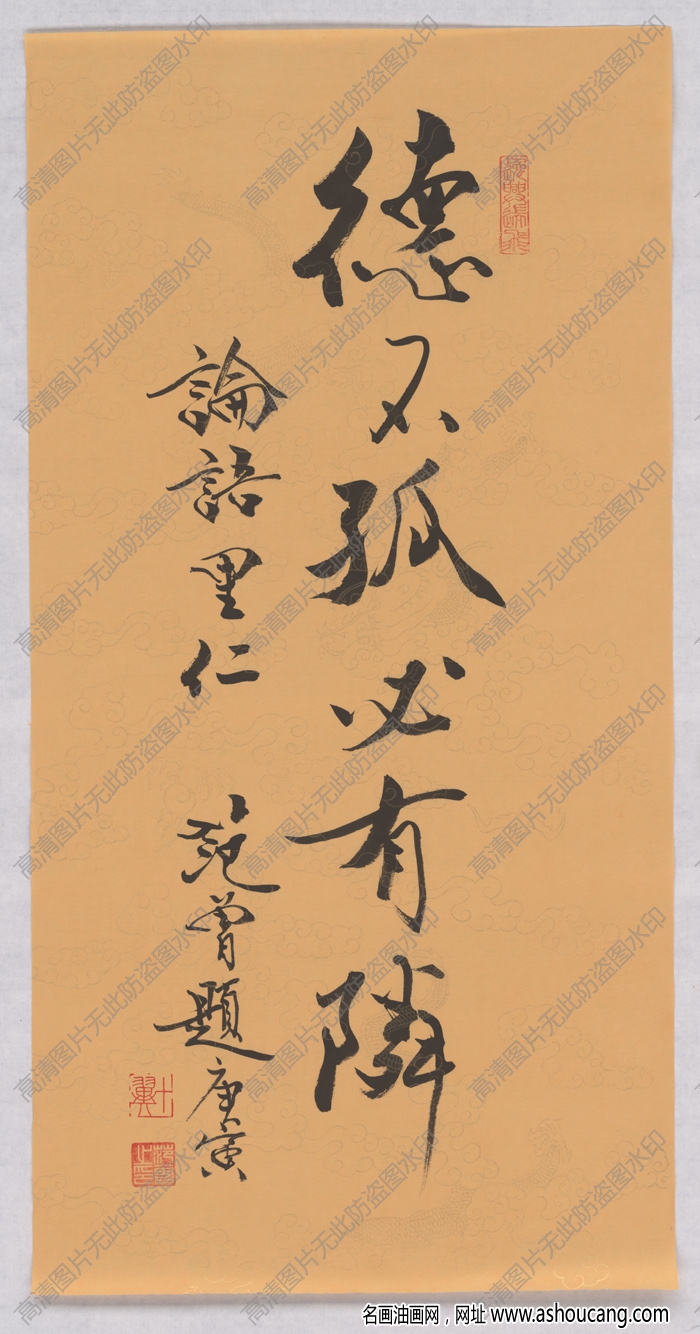 德不孤必有隣
論語里仁
范曾題庚寅
十翼
范曾之印
高清图片无此防盗图水印
名画油画网，网址 www.ashoucang.com